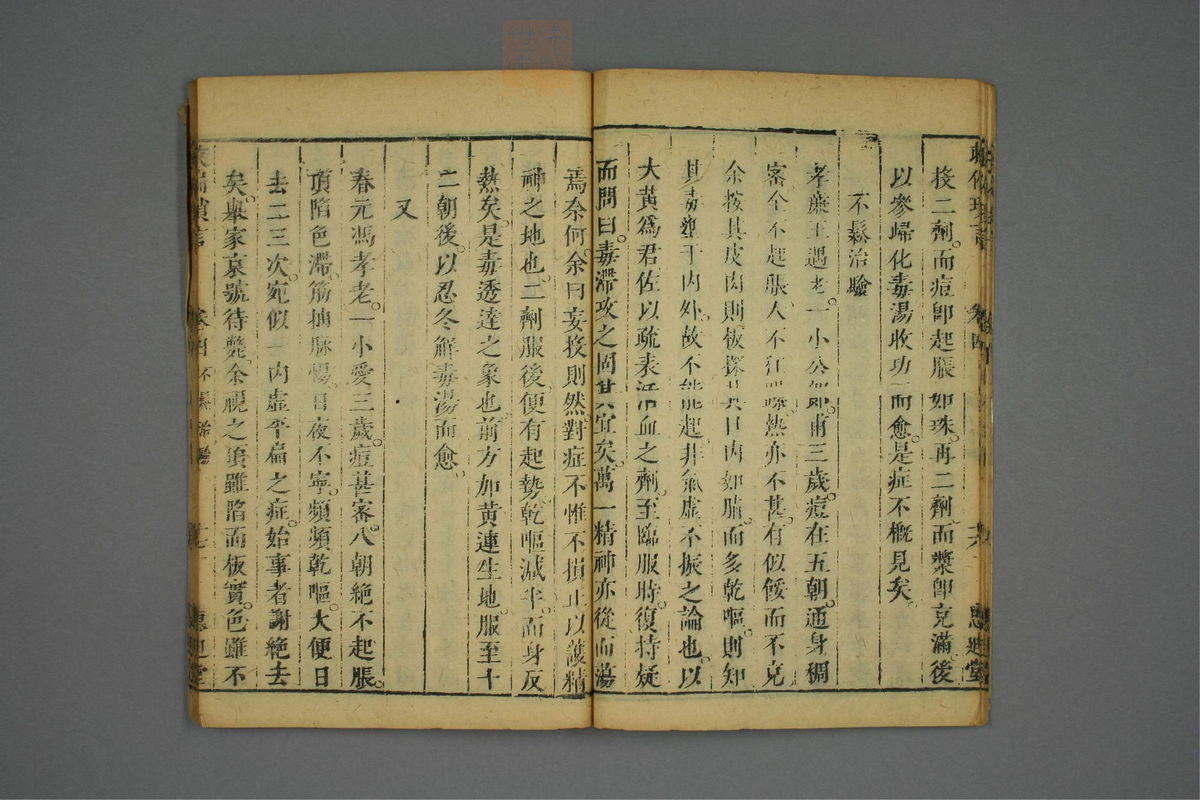 投二劑。而痘即起脹如珠。再二劑。而漿即充滿後
以參歸化毒湯收功而愈。是症不概見矣。
不鬆治驗
孝廉王遇老。一小公郎。甫三歲。痘在五朝。通身稠
密。全不起脹。人不狂躁。熱亦不甚。有似餒而不克
余按其皮肉則板。探其口內如腊。而多乾嘔。則知
其毒壅于內外。故不能起。非氣虛不振之論也。以
大黃爲君佐以疏表活血之劑。至臨服時。復持疑
而問曰。毒滯攻之固其宜矣。萬一精神亦從而蕩
焉奈何。余曰妄投則然。對症不惟不損。止以護精
神之地也。二劑服後。便有起勢。乾嘔減半。而身反
熱矣。是毒透達之象也。前方加黃連生地。服至十
二朝後。以忍冬解毒湯而愈。
又
春元馮孝老。一小愛三歲。痘甚密。八朝絶不起脹。
頂陷色滯。筋抽脉惕。日夜不寧。頻頻乾嘔。大便日
去二三次。宛似一內虛平扁之症。始事者謝絶去
矣。舉家哀號待斃。余視之。頂雖陷而板實。色雖不